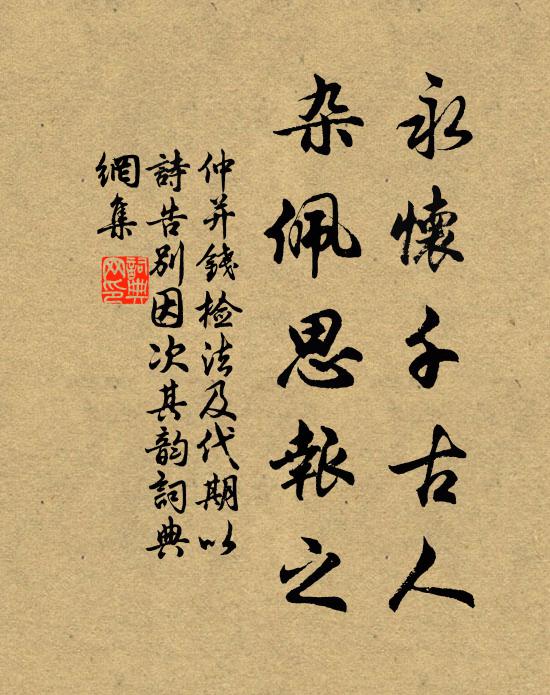 永懷千古人
杂佩思報之
仲并錢检法及代期以
詩告別因次其韵詞典
網集
詞典网印